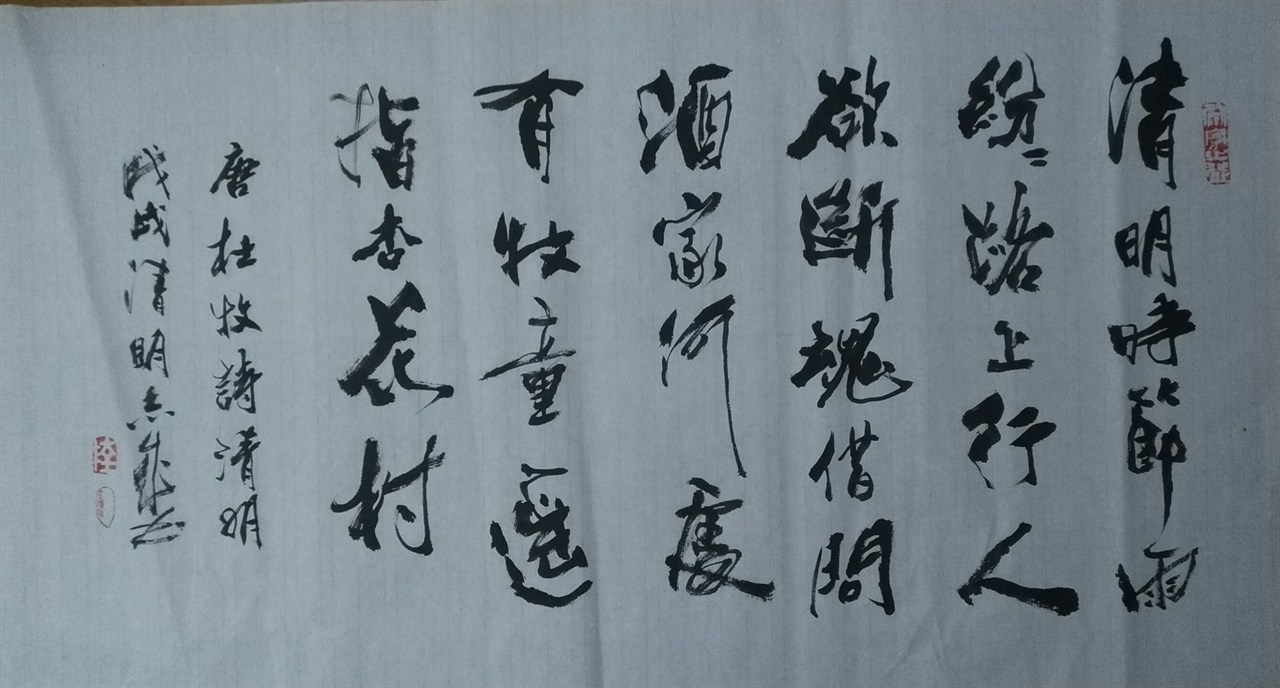 清明時節雨
紛〻路上行人
欲斷魂借問
酒家何處
有牧童遥
指杏花村
唐杜牧詩清明
戊戌清明